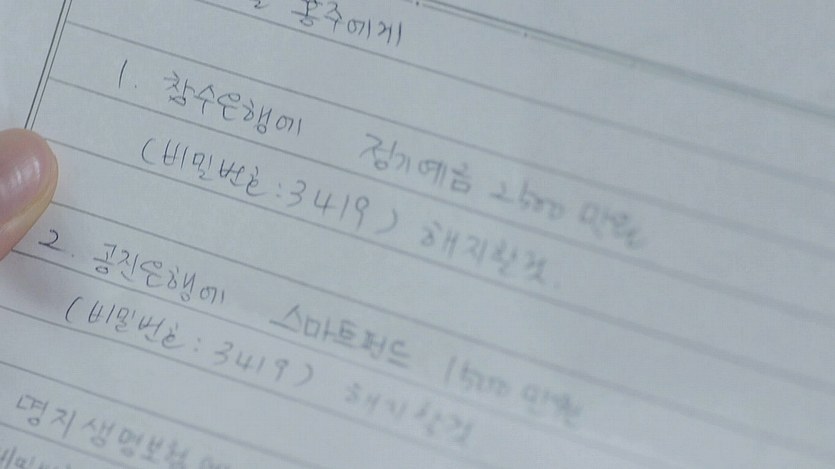 홍주에게
1. 참수은행에 정기예금 2500 만원
(비밀번호:3419) 해지할것.
2. 공진은행에 스마트펀드 1500 만원
(비밀번호:3419) 해지할것
명지생명보험